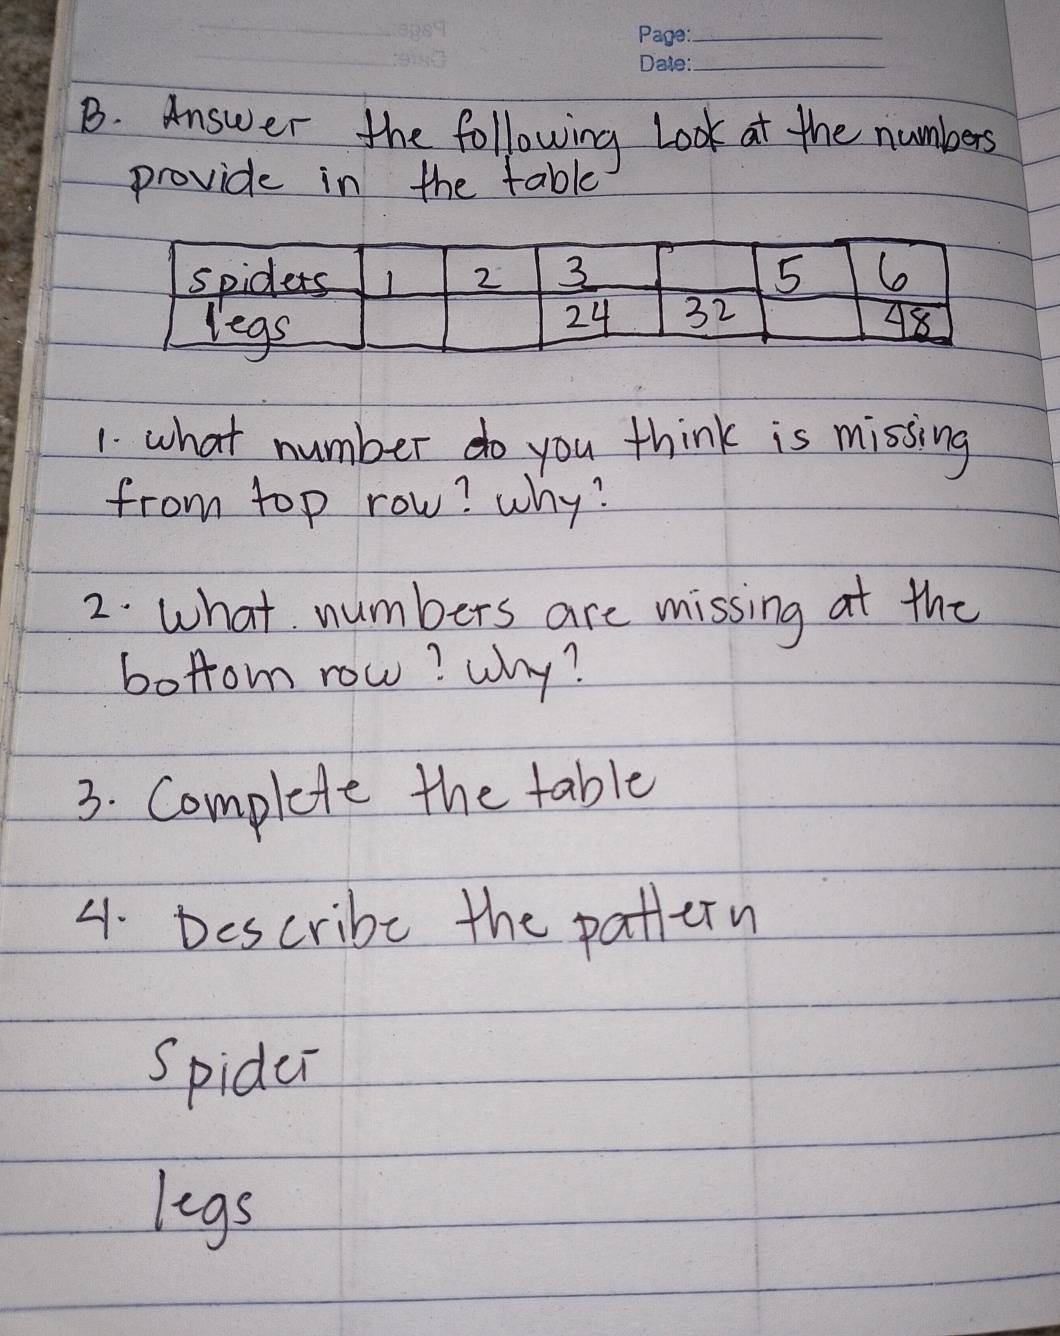 Page:
Date:
B. Answer the following Look at the numbers
provide in the table
spiders 1 2 3 5 6
legs 24 32 48
1. what number do you think is missing
from top row? why?
2. what numbers are missing at the
bottom row? why?
3. Complete the table
4. Describe the pattern
Spider
legs